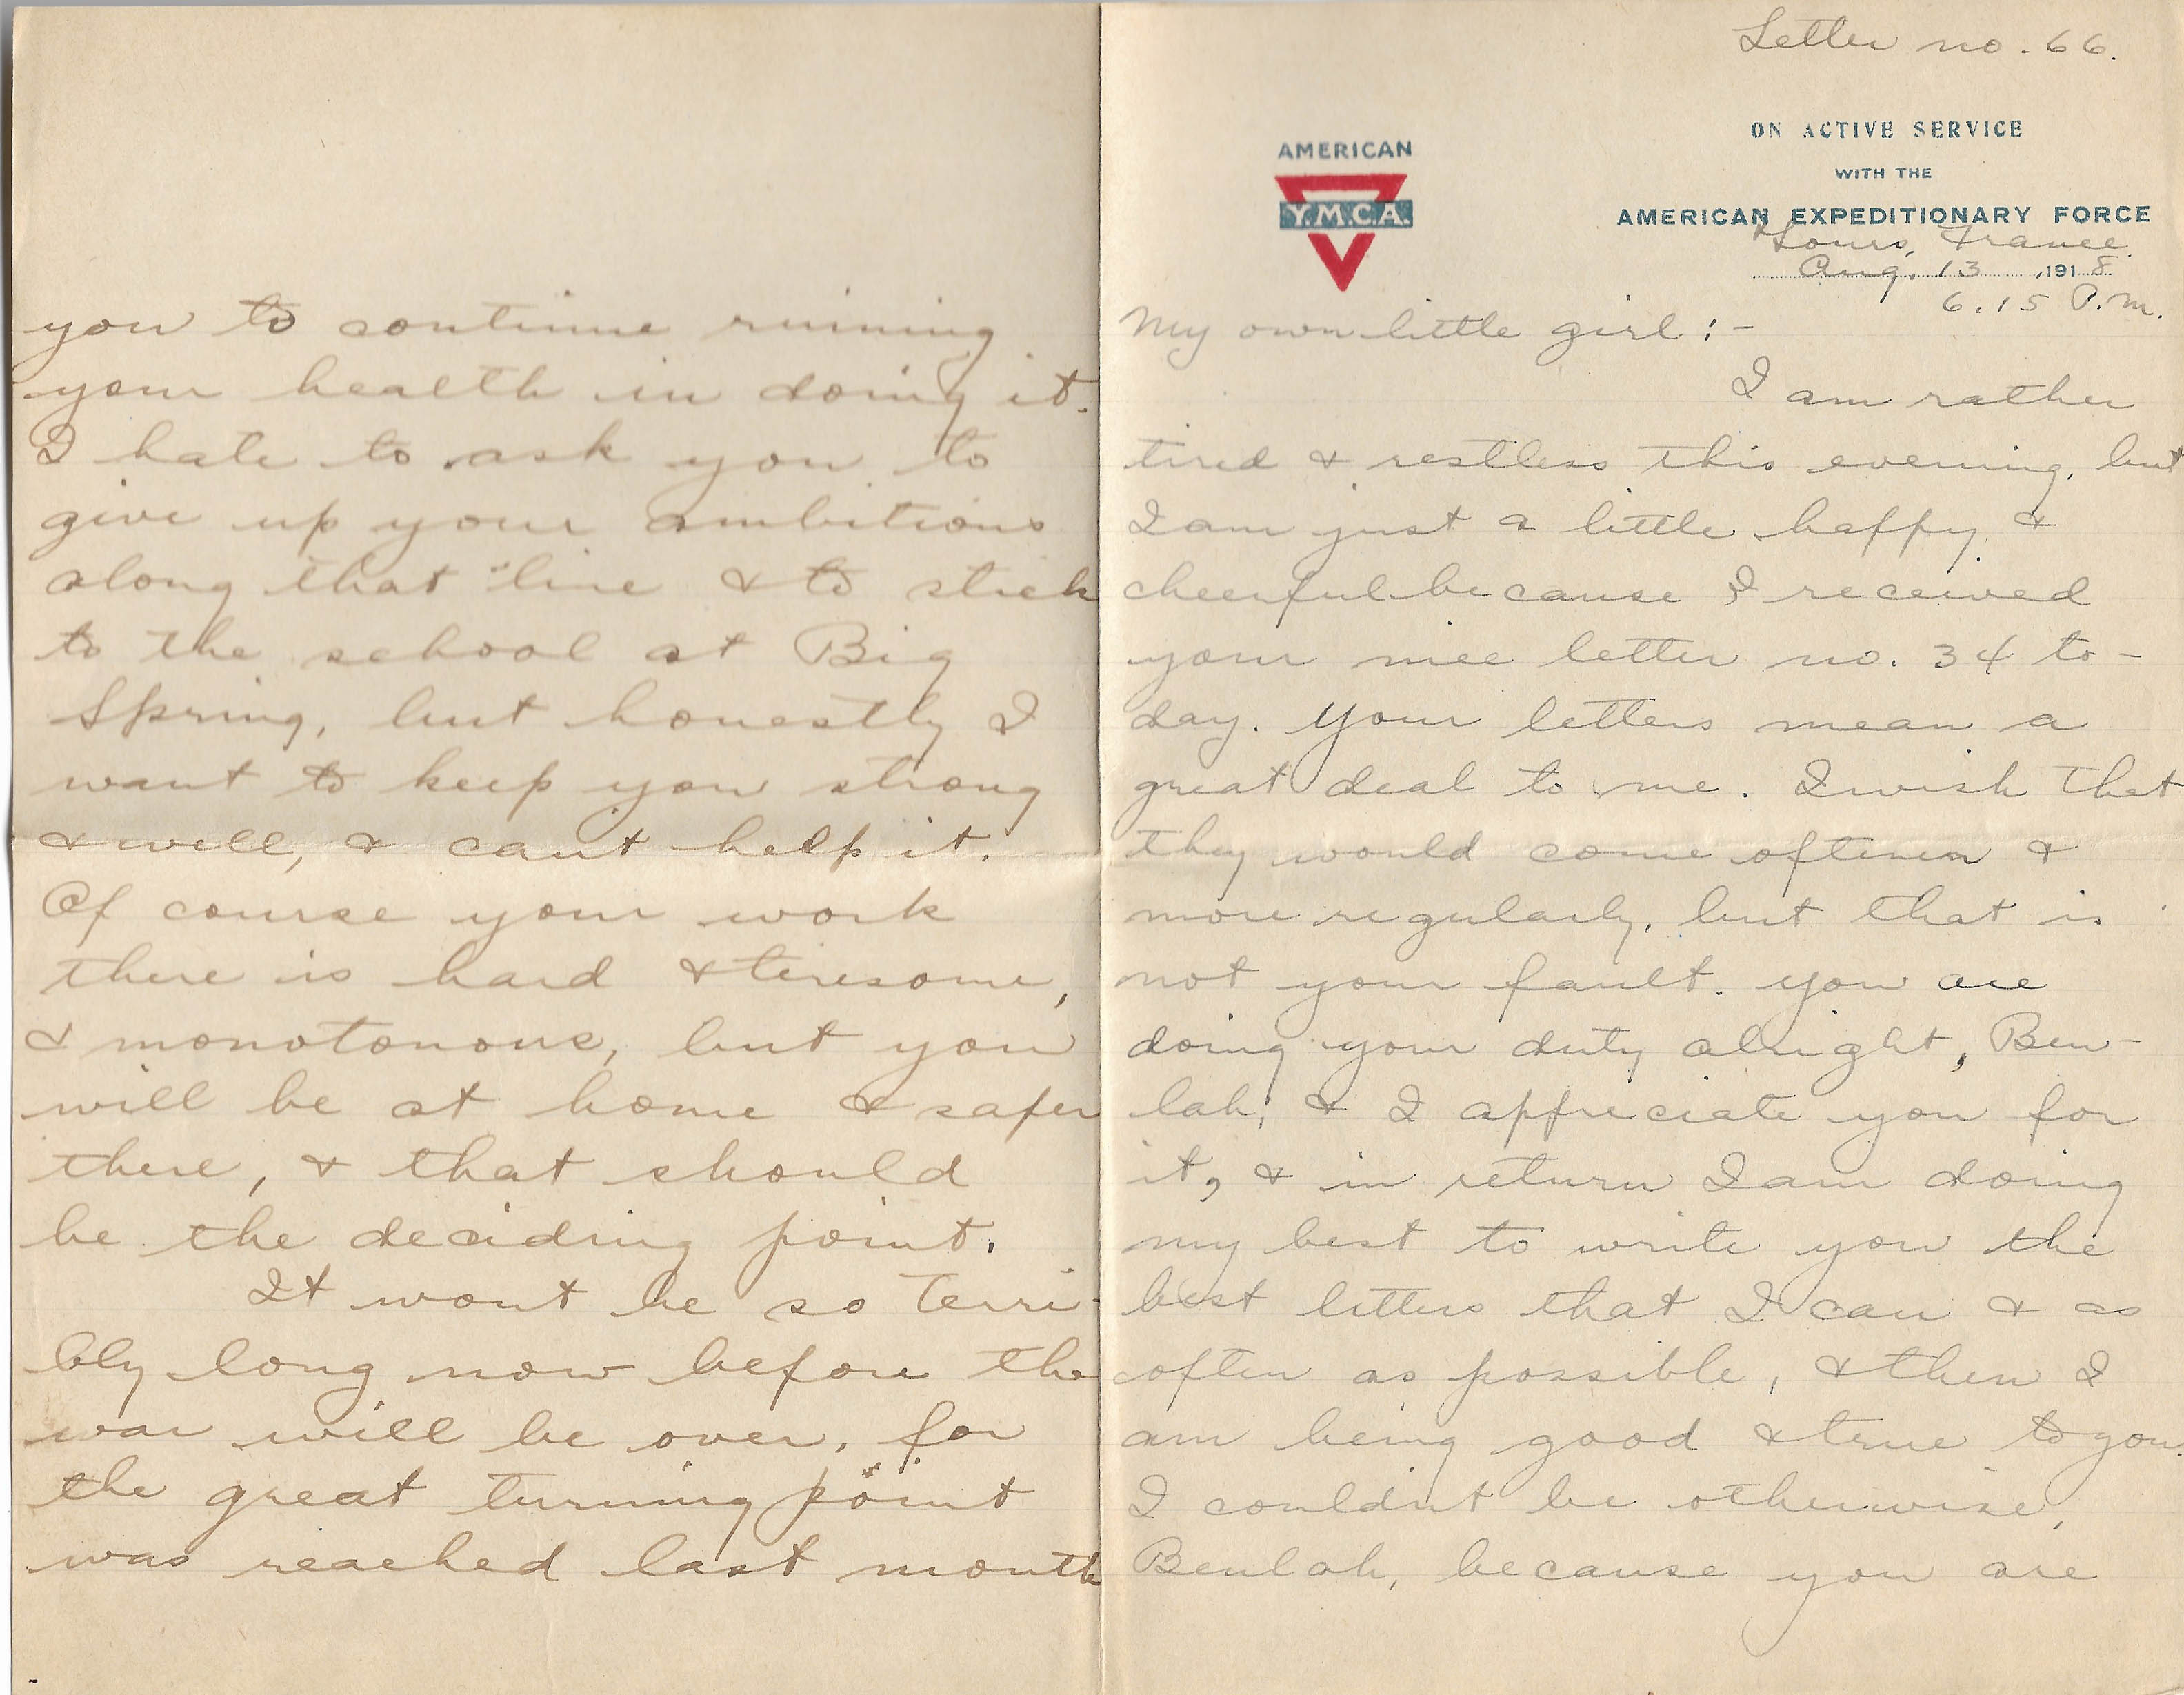 Letter no. 66.
AMERICAN
Y.M.C.A.
ON ACTIVE SERVICE
WITH THE
AMERICAN EXPEDITIONARY FORCE
Tours, France.
Aug. 13 , 1918.
6.15 P.M.
My own little girl :-
I am rather
tired & restless this evening, but
I am just a little happy &
cheerful because I received
your nice letter no. 34 to-
day. Your letters mean a
great deal to me. I wish that
they would come oftener &
more regularly, but that is
not your fault. You are
doing your duty alright, Beu-
lah, & I appreciate you for
it, & in return I am doing
my best to write you the
best letters that I can & as
often as possible, & then I
am being good & true to you.
I couldn't be otherwise,
Beulah, because you are
you to continue ruining
your health in doing it.
I hate to ask you to
give up your ambitions
along that line & to stick
to the school at Big
Spring, but honestly I
want to keep you strong
& well, & cant help it.
Of course your work
there is hard & tiresome,
& monotonous, but you
will be at home & safer
there, & that should
be the deciding point.
It wont be so terri-
bly long now before the
war will be over, for
the great turning point
was reached last month